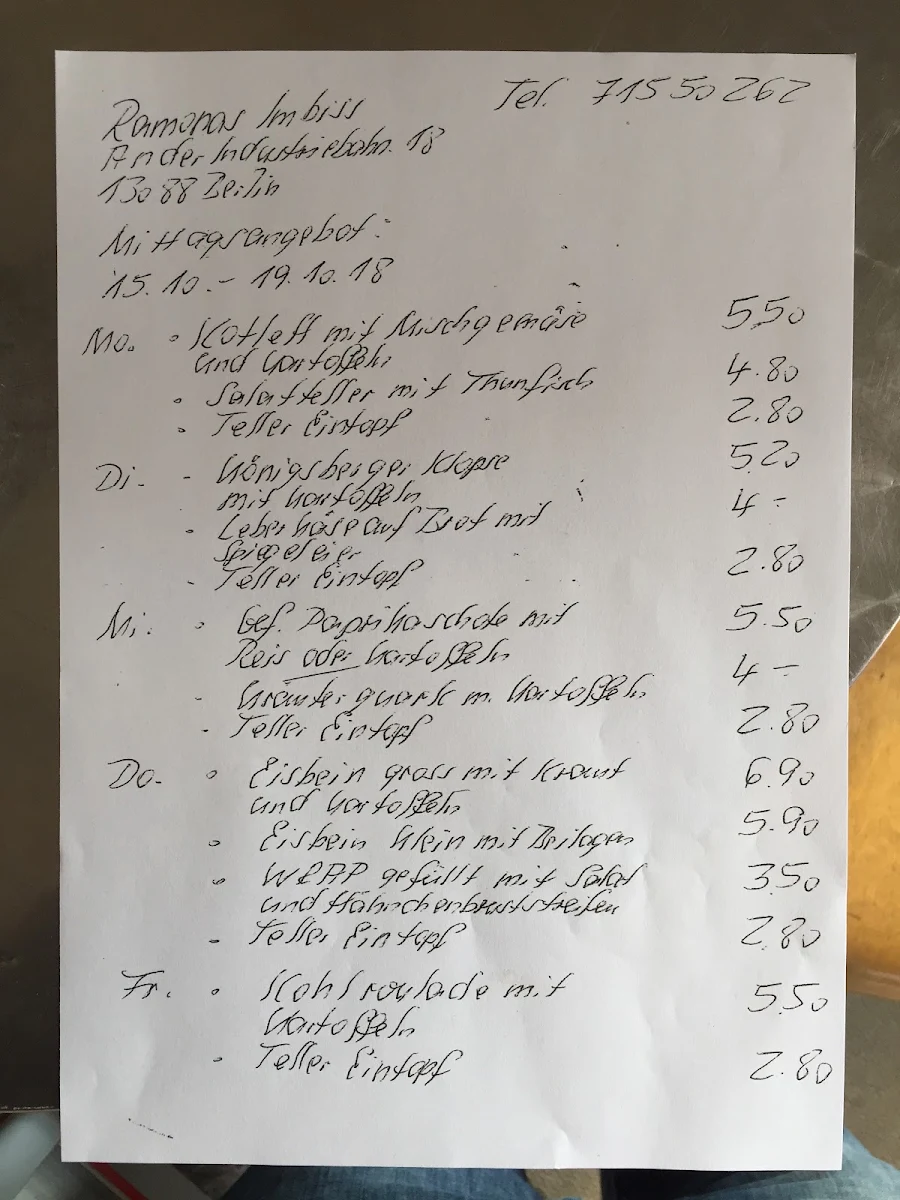 Tel. 715 50 262
Ramonas Imbiss
An der Industriebahn. 18
13088 Berlin
Mittagsangebot:
15.10.- 19.10.18
Mo. - Kotlett mit Mischgemüse 5.50
und Kartoffeln
- Salatteller mit Thunfisch 4.80
- Teller Eintopf 2.80
Di. - Königsberger Klopse 5.20
mit Kartoffeln
- Leberkäse auf Brot mit 4 -
Spiegeleier
- Teller Eintopf 2.80
Mi. - Gef. Paprikaschote mit 5.50
Reis oder Kartoffeln
- Kräuterquark m. Kartoffeln 4 -
- Teller Eintopf 2.80
Do. - Eisbein gross mit Kraut 6.90
und Kartoffeln
- Eisbein klein mit Beilagen 5.90
- WRAP gefüllt mit Salat 3.50
und Hähnchenbruststreifen
- Teller Eintopf 2.80
Fr. - Kohlroulade mit 5.50
Kartoffeln
- Teller Eintopf 2.80